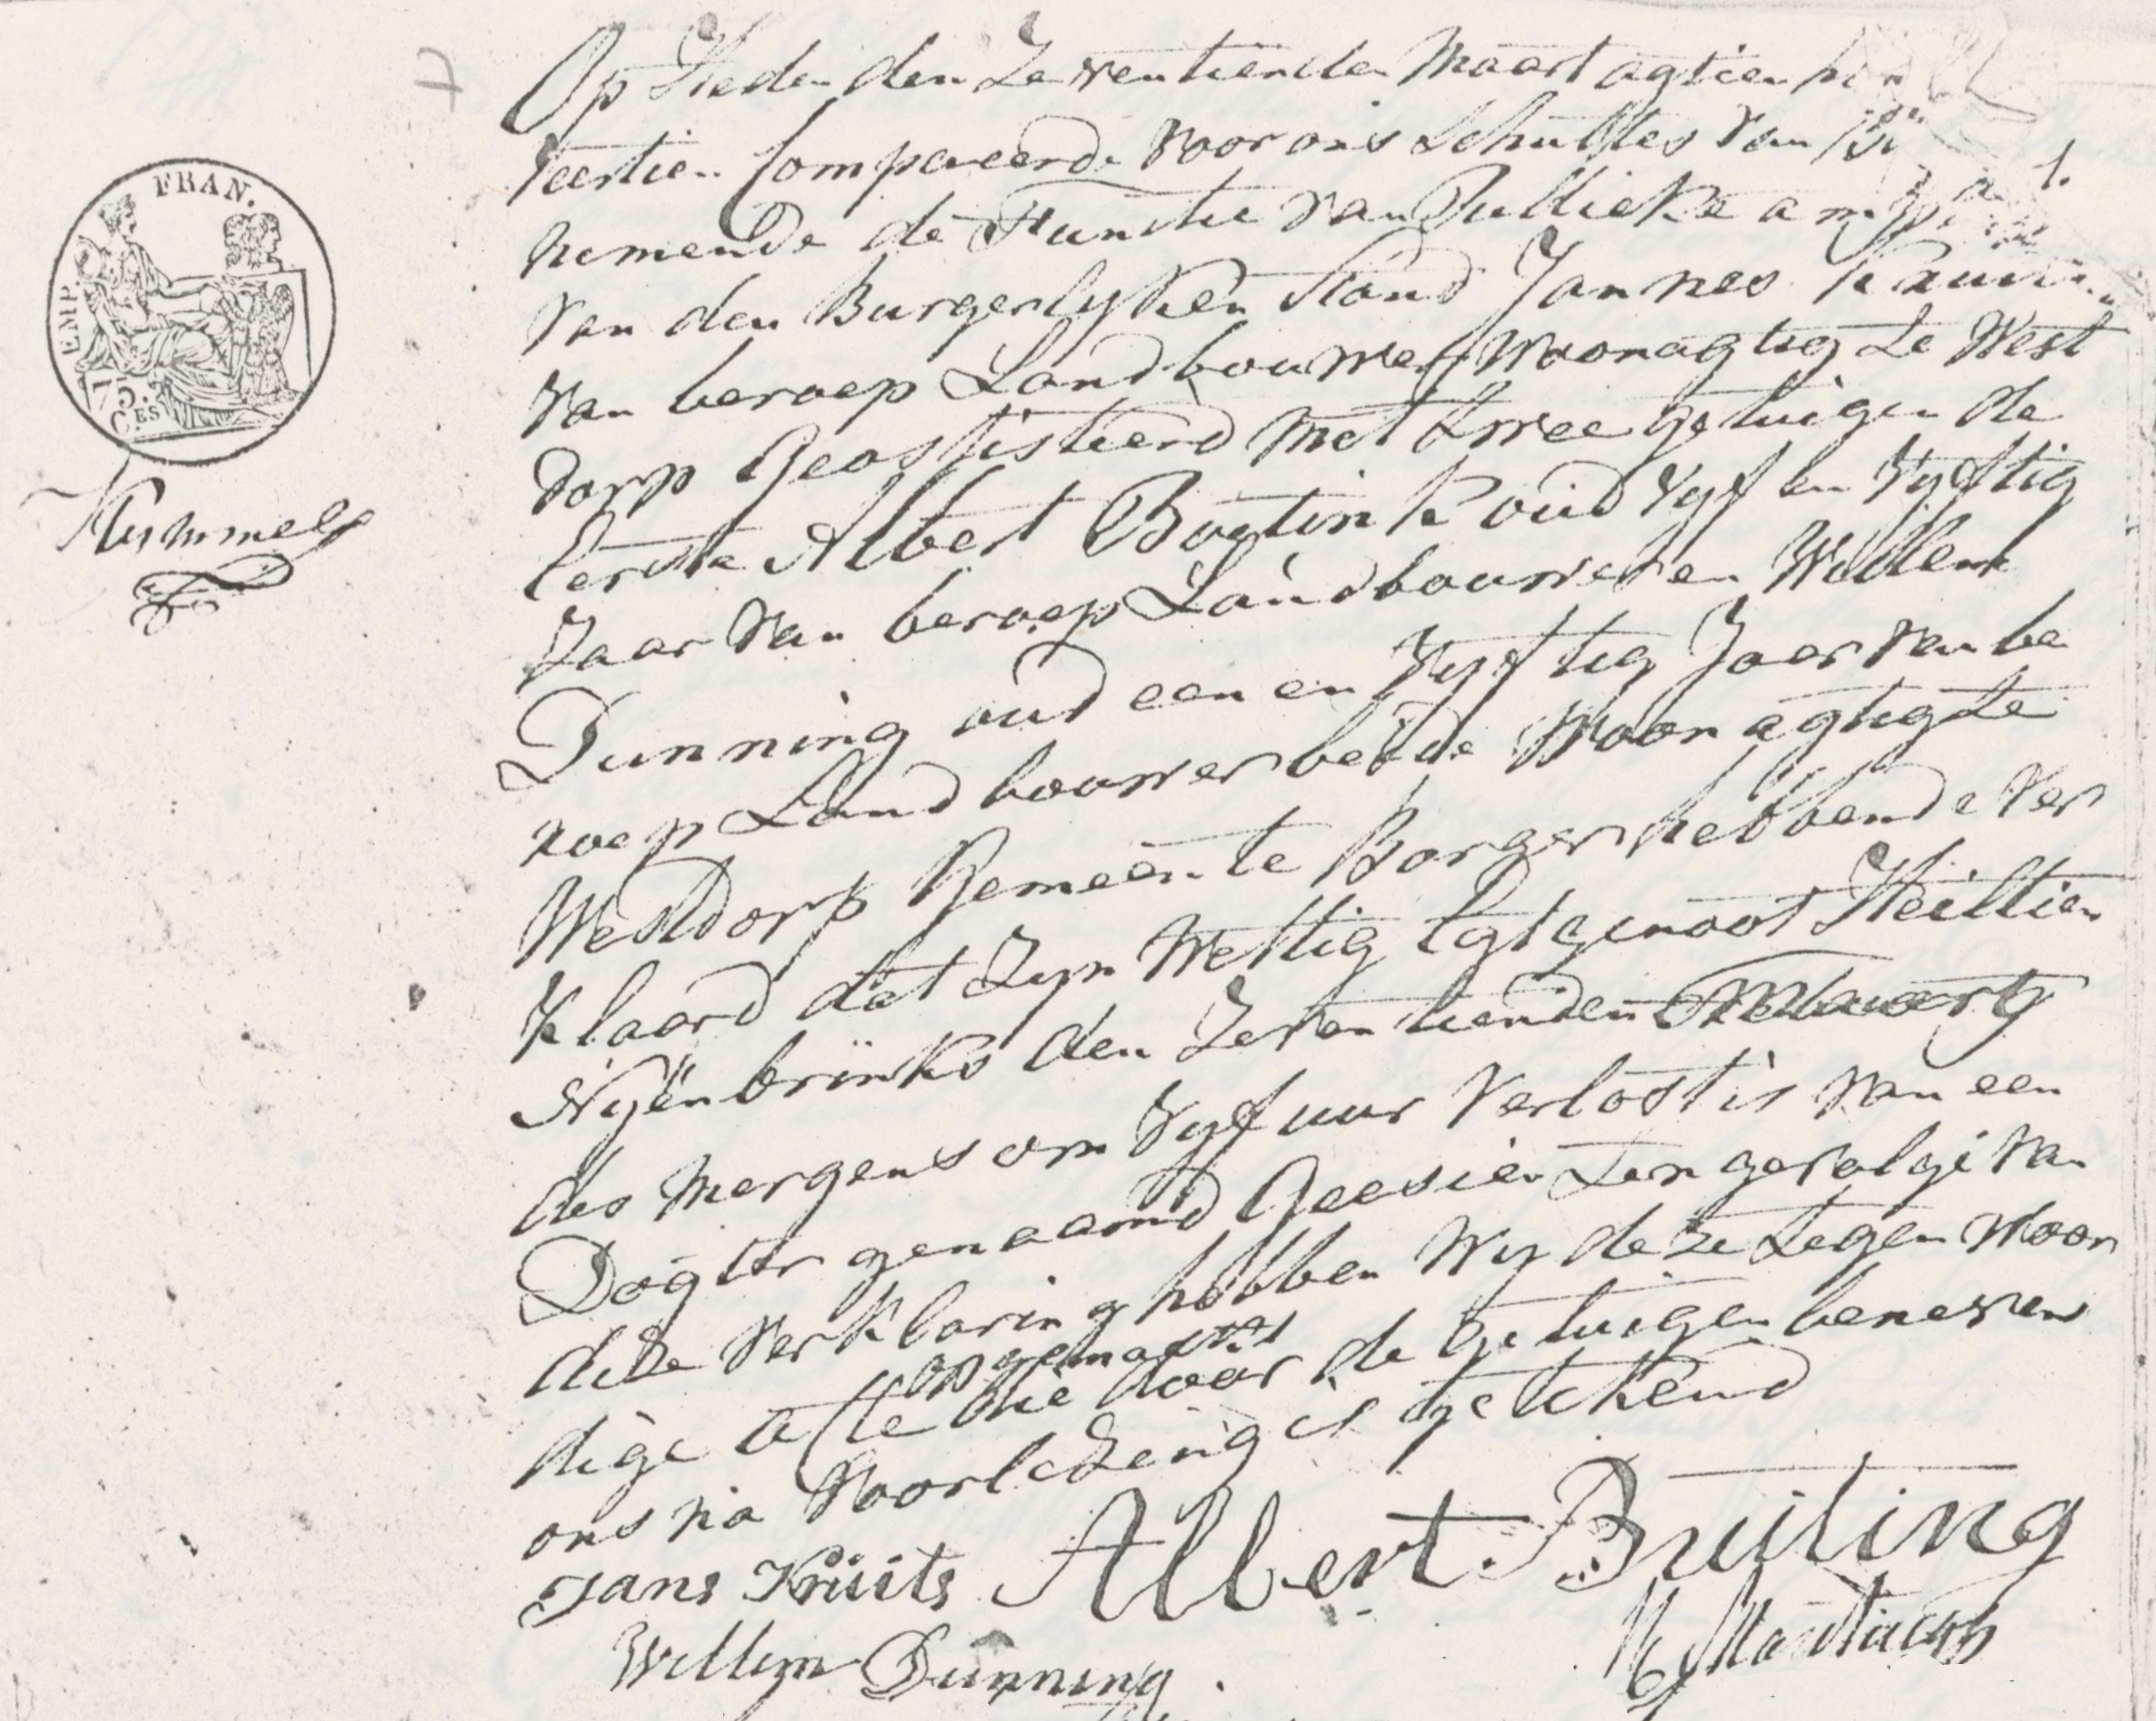 FRAN.
EMP.
75.
C.ES
Kymmell
Op Heden den Zeventienden Maart agtien
Veertien Compareerde voor ons Schultes van
nemende de Functie van Publieke
van den Burgerlyken Stand Jannes
van beroep Landbouwer Woonagtig te West
dorp Geassisteerd met twee getuigen de
Eerste Albert Bugtink oud Vyf en Vyftig
Jaar van beroep Landbouwer en Willem
Dunning oud een en Vyftig Jaar van be
roep Landbouwer beide Woonagtig te
Westdorp Gemeente Borger hebbende ver
klaard dat zyn Wettig Egtgenoot Heiltien
Nyënbrinks den Zeventienden Maart
des Morgens om Vyf uur Verlost is van een
Dogter genaamd Geesien ten gevolge van
deze verklaring hebben Wy deze tegenwoor
opgemaakt
dige acte die door de getuigen benevens
ons na Voorlezing is getekend
Jans Kruits Albert Buiting
Willem Dunning.